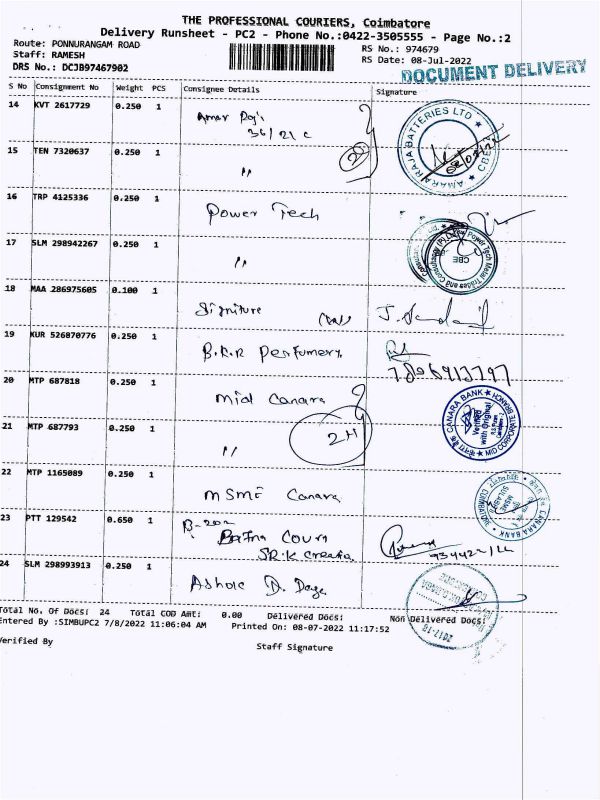 THE PROFESSIONAL COURIERS, Coimbatore
Delivery Runsheet - PC2 - Phone No.:0422-3505555 - Page No.:2
Route: PONNURANGAM ROAD
RS No.: 974679
Staff: RAMESH
RS Date: 08-Jul-2022
DRS No.: DCJB97467902
DOCUMENT DELIVERY
S No Consignment No Weight PCS Consignee Details Signature
14 KVT 2617729 0.250 1
36/21 C
AMARA RAJA BATTERIES LTD CBE
15 TEN 7320637 0.250 1 〃
16 TRP 4125336 0.250 1 Power Tech
17 SLM 298942267 0.250 1 〃
CBE
18 MAA 286975605 0.100 1 Signiture
19 KUR 526870776 0.250 1 B.R.R Perfumery
20 MTP 687818 0.250 1 Mid Canara
CANARA BANK MID CORPORATE BRANCH
Verified with Original
21 MTP 687793 0.250 1 〃
2H
22 MTP 1165089 0.250 1 MSME Canara
23 PTT 129542 0.650 1 B-202
SR.K Creatia
24 SLM 298993913 0.250 1 Ashok D.
2017-18
Total No. Of Docs: 24 Total COD Amt: 0.00 Delivered Docs: Non Delivered Docs:
Entered By :SIMBUPC2 7/8/2022 11:06:04 AM Printed On: 08-07-2022 11:17:52
Verified By
Staff Signature